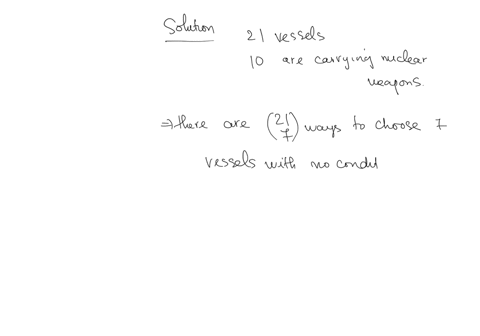 Solution 21 vessels
10 are carrying nuclear
weapons.
⇒ there are (21 7) ways to choose 7
vessels with no condit